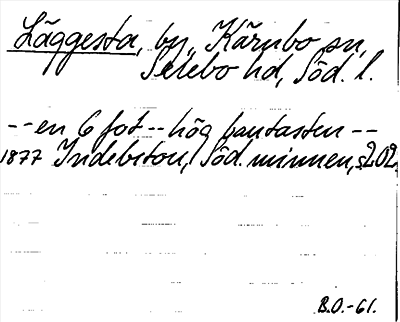 Läggesta, by, Kärnbo sn,
Selebo hd, Söd. l.
--en 6 fot -- hög bautasten --
1877 Indebetou, Söd. minnen, s. 202.
B.O.-61.